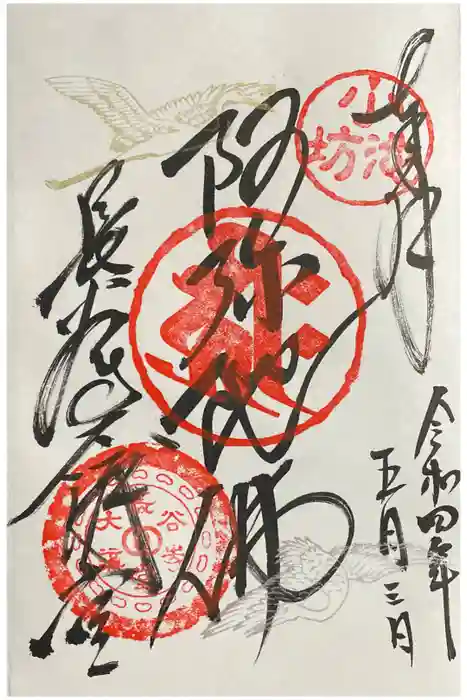 奉拝
令和四年
五月三日
小池坊
阿弥陀佛
長谷寺